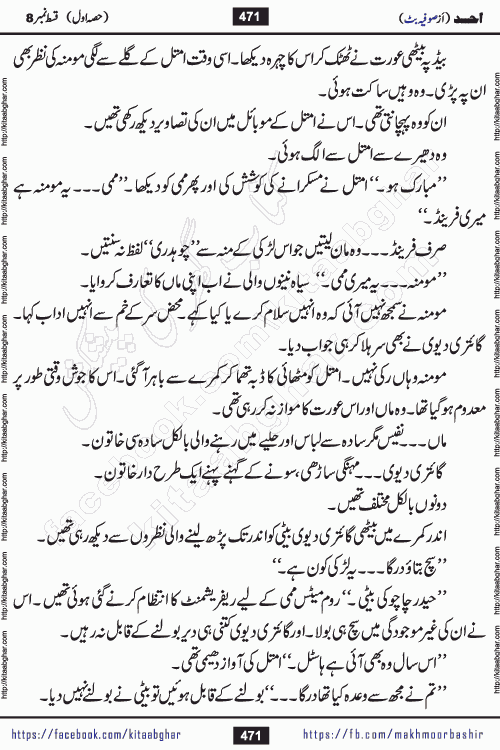 اَحد (از صوفیہ بٹ)
471
(حصہ اول) قسط نمبر 8
بیڈ پہ بیٹھی عورت نے ٹھٹک کر اس کا چہرہ دیکھا۔ اسی وقت امتل کے گلے سے لگی مومنہ کی نظر بھی
ان پہ پڑی۔ وہ وہیں ساکت ہوئی۔
ان کو وہ پہچانتی تھی۔ اس نے امتل کے موبائل میں ان کی تصاویر دیکھ رکھی تھیں۔
وہ دھیرے سے امتل سے الگ ہوئی۔
’’مبارک ہو۔‘‘ امتل نے مسکرانے کی کوشش کی اور پھر ممی کو دیکھا۔ ’’ممی ۔۔۔ یہ مومنہ ہے
میری فرینڈ۔‘‘
صرف فرینڈ ۔۔۔ وہ مان لیتیں جو اس لڑکی کے منہ سے ’’چوہدری‘‘ لفظ نہ سنتیں۔
’’مومنہ ۔۔۔ یہ میری ممی۔‘‘ سیاہ نینوں والی نے اب اپنی ماں کا تعارف کروایا۔
مومنہ نے سمجھ نہیں آئی کہ وہ انہیں سلام کرے یا کیا کہے۔ محض سر کے خم سے انہیں اداب کہا۔
گائتری دیوی نے بھی سر ہلا کر ہی جواب دیا۔
مومنہ وہاں رکی نہیں۔ امتل کو مٹھائی کا ڈبہ تھما کر کمرے سے باہر آ گئی۔ اس کا جوش وقتی طور پر
معدوم ہو گیا تھا۔ وہ ماں اور اس عورت کا موازنہ کر رہی تھی۔
ماں ۔۔۔ نفیس مگر سادہ سے لباس اور حلیے میں رہنے والی بالکل سادہ سی خاتون۔
گائتری دیوی ۔۔۔ مہنگی ساڑھی، سونے کے گہنے پہنے ایک طرح دار خاتون۔
دونوں بالکل مختلف تھیں۔
اندر کمرے میں بیٹھی گائتری دیوی بیٹی کو اندر تک پڑھ لینے والی نظروں سے دیکھ رہی تھیں۔
’’سچ بتاؤ درگا ۔۔۔ یہ لڑکی کون ہے۔‘‘
’’حیدر چاچو کی بیٹی۔‘‘ روم میٹس ممی کے لیے ریفریشمنٹ کا انتظام کرنے گئی ہوئی تھیں۔ اس
نے ان کی غیر موجودگی میں سچ ہی بولا۔ اور گائتری دیوی کتنی ہی دیر بولنے کے قابل نہ رہیں۔
’’اس سال وہ بھی آئی ہے ہاسٹل۔‘‘ امتل کی آواز دھیمی تھی۔
’’تم نے مجھ سے وعدہ کیا تھا درگا ۔۔۔‘‘ بولنے کے قابل ہوئیں تو بیٹی نے بولنے نہیں دیا۔
http://kitaabghar.com
facebook.com/kitaabghar
https://facebook.com/kitaabghar
471
https://fb.com/makhmoorbashir